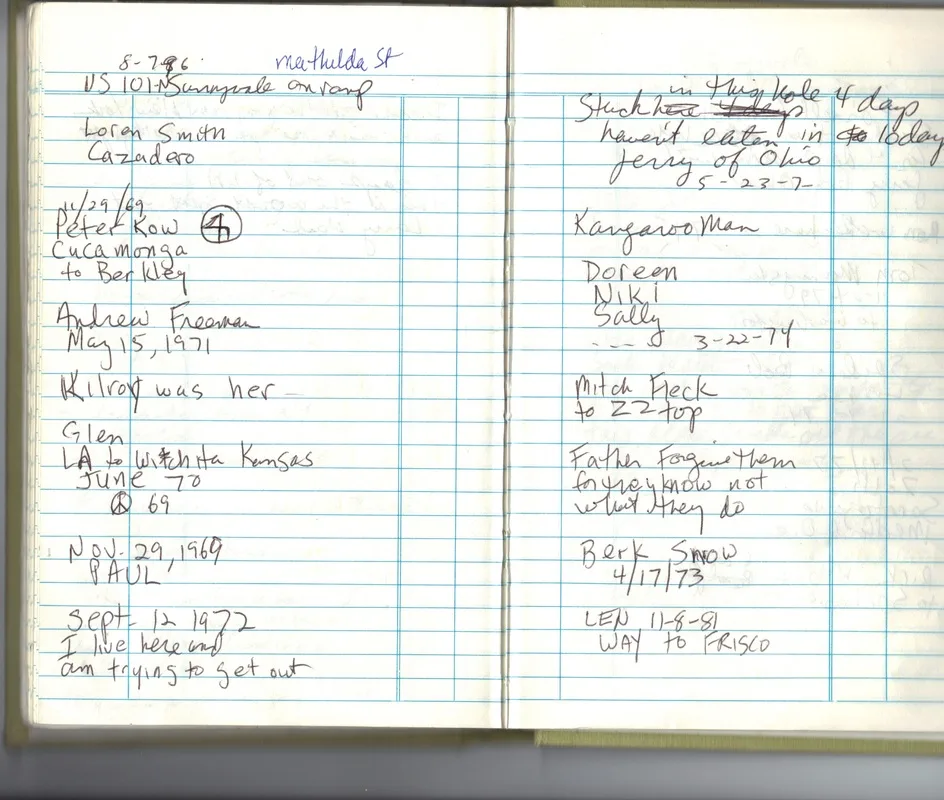 8-7-86. Mathilda St
US 101-N Sunnyvale on ramp
Loren Smith
Cazadero
11/29/69
Peter Kow
Cucamonga
to Berkley
Andrew Freeman
May 15, 1971
Kilroy was her
Glen
LA to Witchita Kansas
June 70
69
Nov. 29, 1969
PAUL
Sept. 12 1972
I live here and
am trying to get out
in this hole 4 days
Stuck
havent eaten in 10 day
Jerry of Ohio
5-23-7-
Kangaroo Man
Doreen
Niki
Sally
---- 3-22-74
Mitch Fleck
to ZZ top
Father Forgive them
for they know not
what they do
Berk Snow
4/17/73
LEN 11-8-81
WAY to FRISCO